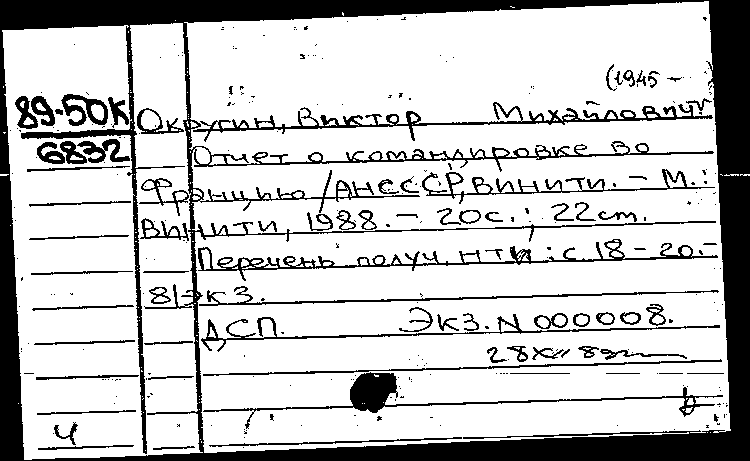 (1945 – )
89-50К Округин, Виктор Михайлович
6832 Отчет о командировке во
Францию / АН СССР, ВИНИТИ. – М.:
ВИНИТИ, 1988. – 20 с.; 22 см.
Перечень получ. НТИ : с. 18 – 20. –
81 экз.
ДСП. Экз. N 000008.
Ч